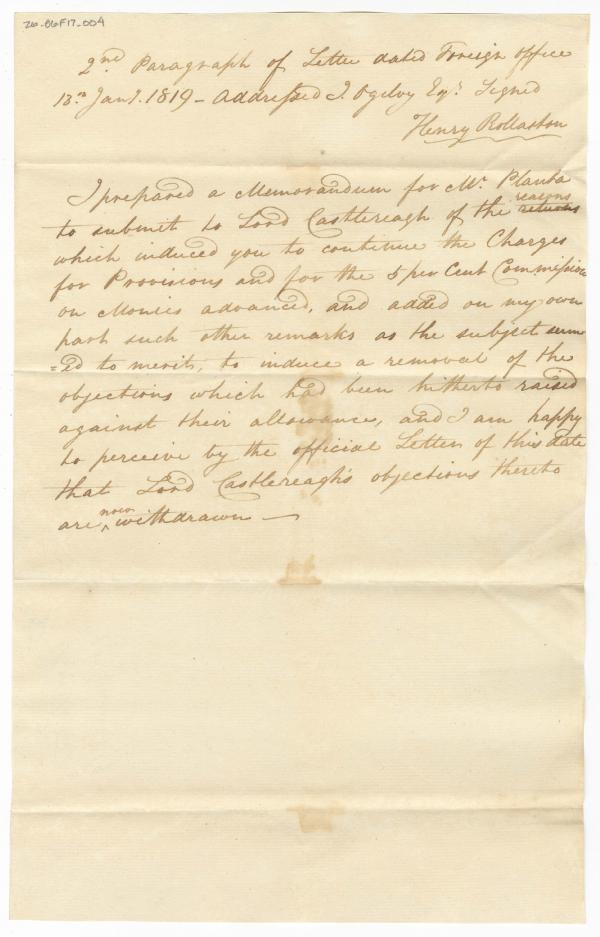 26-B6F17-004
2nd Paragraph of Letter dated Foreign Office
13th Jany. 1819 - Addressed J. Ogilvy Esqr. Signed
Henry Rollaston
I prepared a Memorandum for Mr. Planta
to submit to Lord Castlereagh of the returns reasons
which induced you to continue the Charges
for Provisions and for the 5 per Cent Commission
on Monies advanced, and added on my own
part such other remarks as the subject seem
=ed to merit, to induce a removal of the
objections which had been hitherto raised
against their allowance, and I am happy
to perceive by the official Letter of this date
that Lord Castlereagh's objections thereto
are now withdrawn —